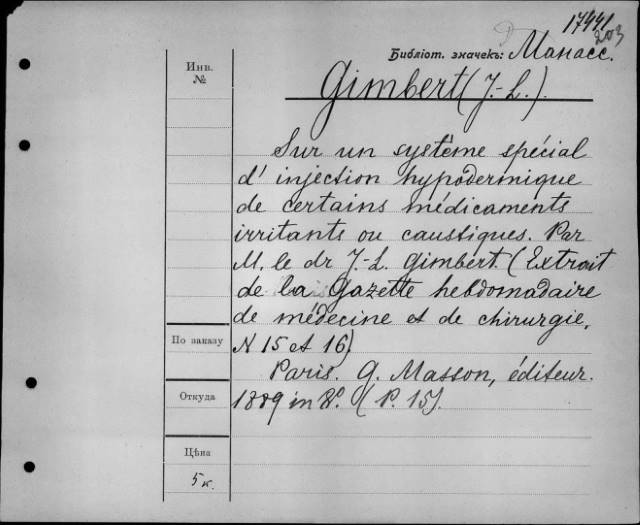 17441
203
Библіот. значекъ: Манасс.
Инв.
№
Gimbert (J.-L.).
Sur un système spécial
d'injection hypodermique
de certains médicaments
irritants ou caustiques. Par
M. le dr J.-L. Gimbert. (Extrait
de la Gazette hebdomadaire
de médecine et de chirurgie,
N 15 et 16)
По заказу
Paris. G. Masson, éditeur.
Откуда
1889 in 8º. (P. 15).
Цѣна
5 к.